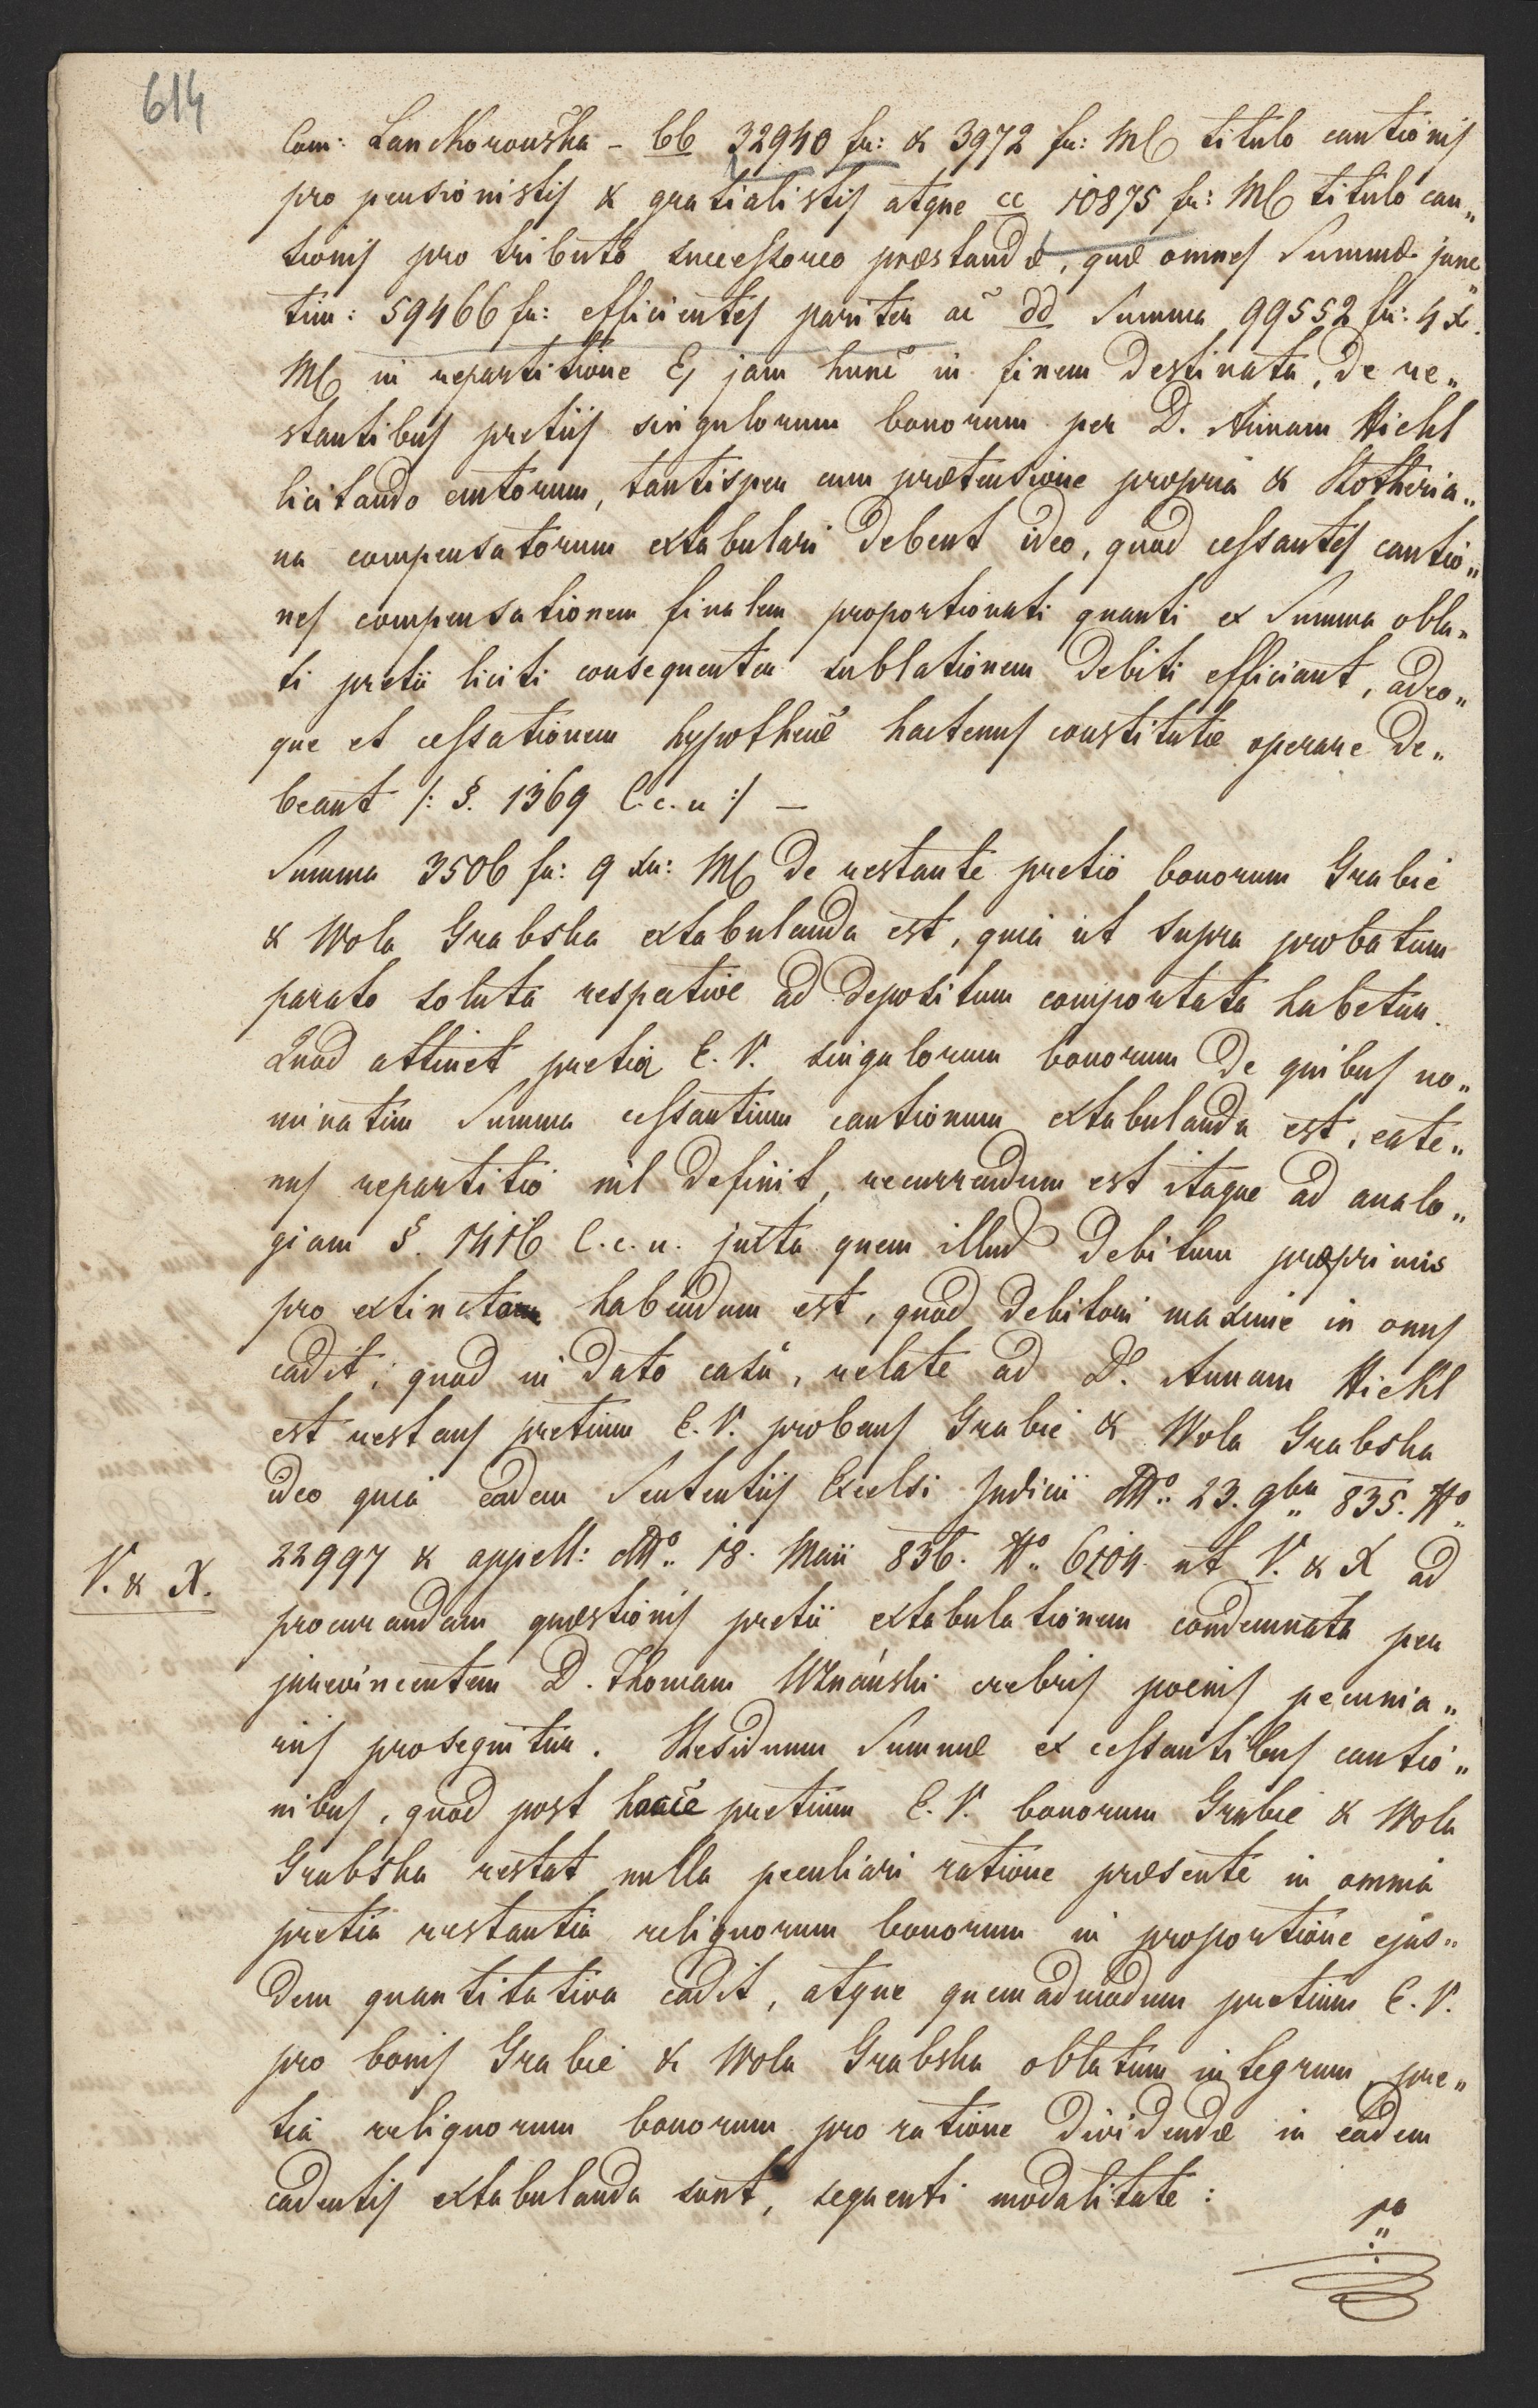 614
Com: Lanckorońska – bb 32940 fr: & 3972 fr: MC titulo cautionis
pro pensionistis & gratialistis atque cc 10875 fr: MC titulo cau„
tionis pro tributo successoreo præstandæ, quæ omnes Summæ junc„
tim: 59466 fr: efficientes pariter ac dd Summa 99552 fr: 4 x.
MC in repartitione E, jam hunc in finem destinata, de re„
stantibus pretiis singulorum bonorum per D. Annam Hickl
licitando emtorum, tantisper cum prætensione propria & Rotheria„
na compensatorum extabulari debent ideo, quod cessantes cautio„
nes compensationem finalem proportionati quanti ex Summa obla„
ti pretii liciti consequenter sublationem debiti efficiant, adeo„
que et cessationem hypothecæ hactenus constitutæ operare de„
beant /: §. 1369 C. c. u :/ —
Summa 3506 fr: 9 xr: MC de restante pretio bonorum Grabie
& Wola Grabska extabulanda est, quia ut supra probatum
parato soluta respective ad depositum comportata habetur.
Quod attinet pretia C. V. singulorum bonorum de quibus no„
minatim Summa cessantium cautionum extabulanda est, eate„
nus repartitio nil definit, recurrendum est itaque ad analo„
giam §. 1416 C. c. u. juxta quem illud debitum præprimis
pro extinctam habendum est, quod debitori maxime in onus
cadit; quod in dato casu, relate ad D. Annam Hickl
est restans pretium C. V. probans Grabie & Wola Grabska
ideo quia eadem Sententiis Excelsi Judicii dtto„ 23. 9br 835. No„
22997 & appell: dtto„ 18. Maii 836. No„ 6104 ut V. & X ad
V. & X.
procurandam quæstionis pretii extabulationem condemnata per
jurevincentem D. Thomam Uznański crebris poenis pecunia„
riis prosequitur. Residuum Summæ ex cessantibus cautio„
nibus, quod post hocce pretium C. V. bonorum Grabie & Wola
Grabska restat nulla peculiari ratione præsente in omnia
pretia restantia reliquorum bonorum in proportione ejus„
dem quantitativa cadit, atque quemadmodum pretium C. V.
pro bonis Grabie & Wola Grabska oblatum integrum, pre„
tia reliquorum bonorum pro ratione dividendæ in eadem
cadentis extabulanda sunt, sequenti modalitate:
1o„